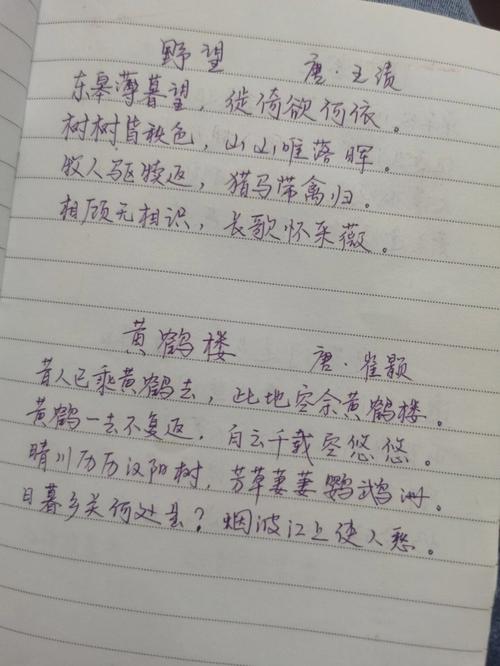 野望 唐·王绩
东皋薄暮望，徙倚欲何依。
树树皆秋色，山山唯落晖。
牧人驱犊返，猎马带禽归。
相顾无相识，长歌怀采薇。
黄鹤楼 唐·崔颢
昔人已乘黄鹤去，此地空余黄鹤楼。
黄鹤一去不复返，白云千载空悠悠。
晴川历历汉阳树，芳草萋萋鹦鹉洲。
日暮乡关何处是？烟波江上使人愁。